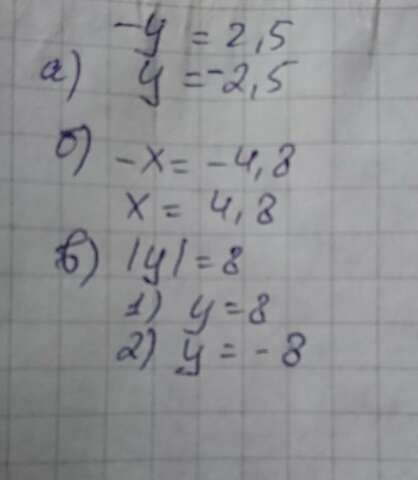 -y = 2,5
а) y = -2,5
б) -x = -4,8
x = 4,8
в) |y| = 8
1) y = 8
2) y = - 8